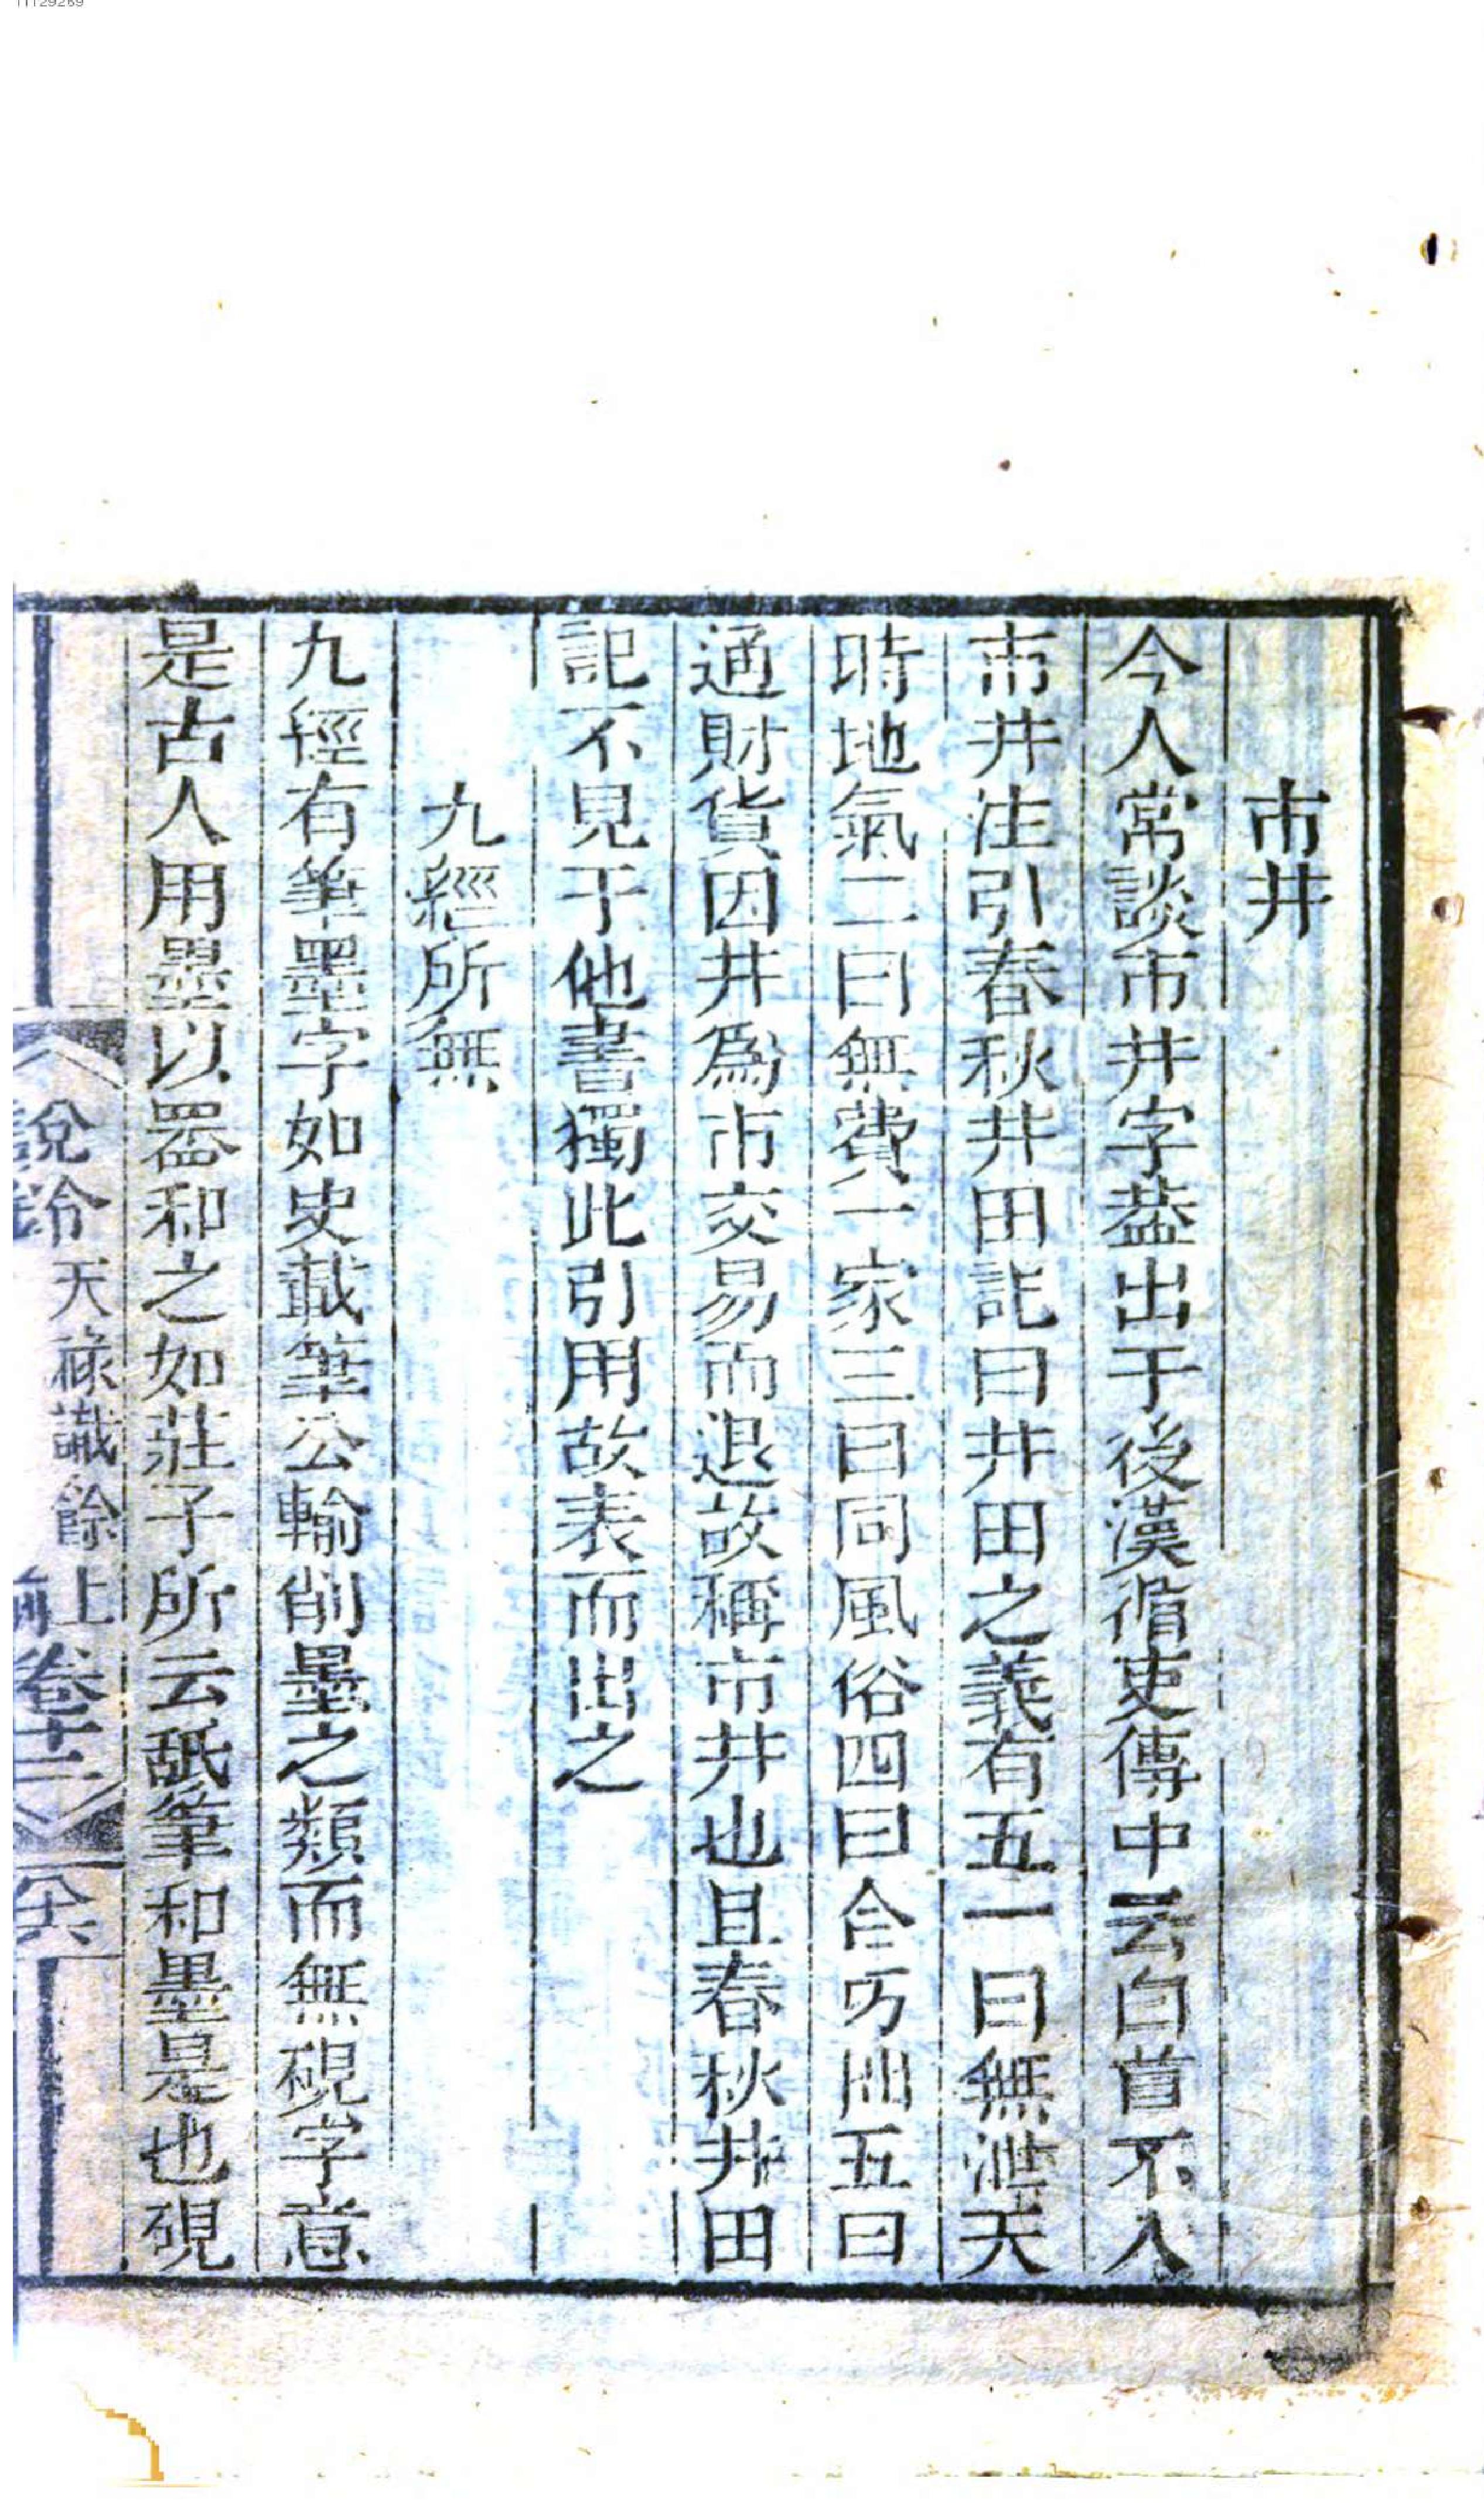 市井
今人常談市井字葢出于後漢循吏傳中云白首不入
市井注引春秋井田記曰井田之義有五一曰無泄天
時地氣二曰無費一家三曰同風俗四曰合巧拙五曰
通財貨因井爲市交易而退故稱市井也且春秋井田
記不見于他書獨此引用故表而出之
九經所無
九經有筆墨字如史載筆公輸削墨之類而無硯字意
是古人用墨以器和之如莊子所云舐筆和墨是也硯
說鈴 天祿識餘上 前卷十二